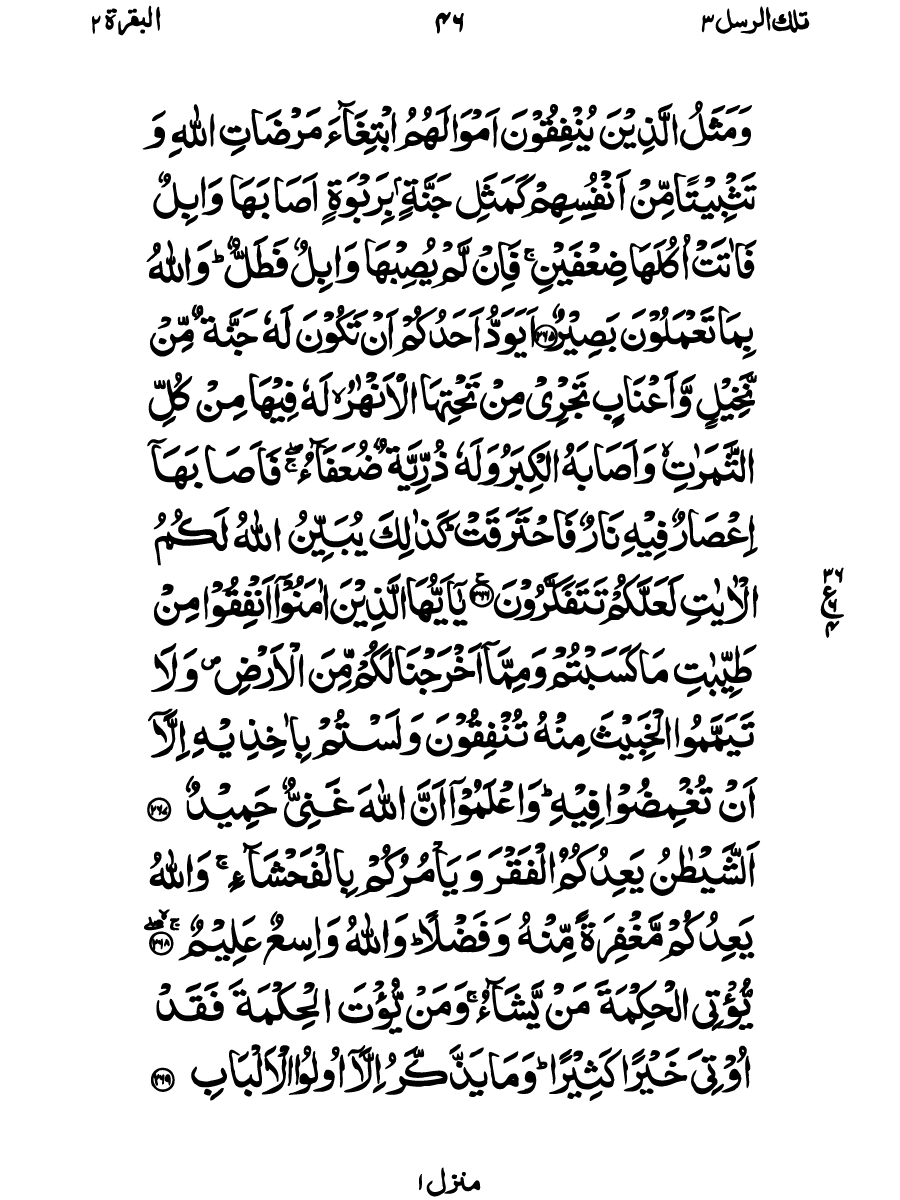 تلك الرسل ٣
۴۶
البقرة ٢
وَمَثَلُ الَّذِيْنَ يُنْفِقُوْنَ اَمْوَالَهُمُ ابْتِغَآءَ مَرْضَاتِ اللّٰهِ وَ
تَثْبِيْتًا مِّنْ اَنْفُسِهِمْ كَمَثَلِ جَنَّةٍۭ بِرَبْوَةٍ اَصَابَهَا وَابِلٌ
فَاٰتَتْ اُكُلَهَا ضِعْفَيْنِ ۚ فَاِنْ لَّمْ يُصِبْهَا وَابِلٌ فَطَلٌّ ؕ وَاللّٰهُ
بِمَا تَعْمَلُوْنَ بَصِيْرٌ ﴿۲۶۵﴾ اَيَوَدُّ اَحَدُكُمْ اَنْ تَكُوْنَ لَهٗ جَنَّةٌ مِّنْ
نَّخِيْلٍ وَّاَعْنَابٍ تَجْرِيْ مِنْ تَحْتِهَا الْاَنْهٰرُ ۙ لَهٗ فِيْهَا مِنْ كُلِّ
الثَّمَرٰتِ ۙ وَاَصَابَهُ الْكِبَرُ وَلَهٗ ذُرِّيَّةٌ ضُعَفَآءُ ۖۚ فَاَصَابَهَاۤ
اِعْصَارٌ فِيْهِ نَارٌ فَاحْتَرَقَتْ ؕ كَذٰلِكَ يُبَيِّنُ اللّٰهُ لَكُمُ
الْاٰيٰتِ لَعَلَّكُمْ تَتَفَكَّرُوْنَ ﴿۲۶۶﴾ يٰۤاَيُّهَا الَّذِيْنَ اٰمَنُوْۤا اَنْفِقُوْا مِنْ
طَيِّبٰتِ مَا كَسَبْتُمْ وَمِمَّاۤ اَخْرَجْنَا لَكُمْ مِّنَ الْاَرْضِ ۪ وَلَا
تَيَمَّمُوا الْخَبِيْثَ مِنْهُ تُنْفِقُوْنَ وَلَسْتُمْ بِاٰخِذِيْهِ اِلَّاۤ
اَنْ تُغْمِضُوْا فِيْهِ ؕ وَاعْلَمُوْۤا اَنَّ اللّٰهَ غَنِيٌّ حَمِيْدٌ ﴿۲۶۷﴾
اَلشَّيْطٰنُ يَعِدُكُمُ الْفَقْرَ وَيَاْمُرُكُمْ بِالْفَحْشَآءِ ۚ وَاللّٰهُ
يَعِدُكُمْ مَّغْفِرَةً مِّنْهُ وَفَضْلًا ؕ وَاللّٰهُ وَاسِعٌ عَلِيْمٌ ﴿۲۶۸﴾ ۖۚ
يُّؤْتِي الْحِكْمَةَ مَنْ يَّشَآءُ ۚ وَمَنْ يُّؤْتَ الْحِكْمَةَ فَقَدْ
اُوْتِيَ خَيْرًا كَثِيْرًا ؕ وَمَا يَذَّكَّرُ اِلَّاۤ اُولُوا الْاَلْبَابِ ﴿۲۶۹﴾
۳۶
ع
۶
۴
منزل ١